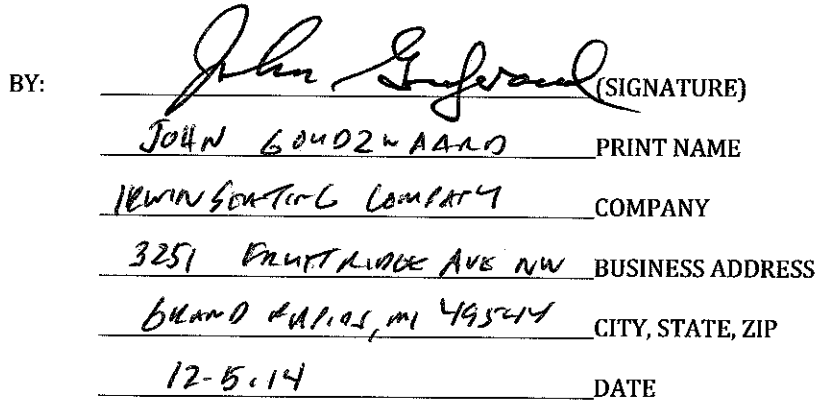 BY: John Goudzwaard (SIGNATURE)
JOHN GOUDZWAARD PRINT NAME
IRWIN SEATING COMPANY COMPANY
3251 FRUITRIDGE AVE NW BUSINESS ADDRESS
GRAND RAPIDS, MI 49544 CITY, STATE, ZIP
12-5.14 DATE